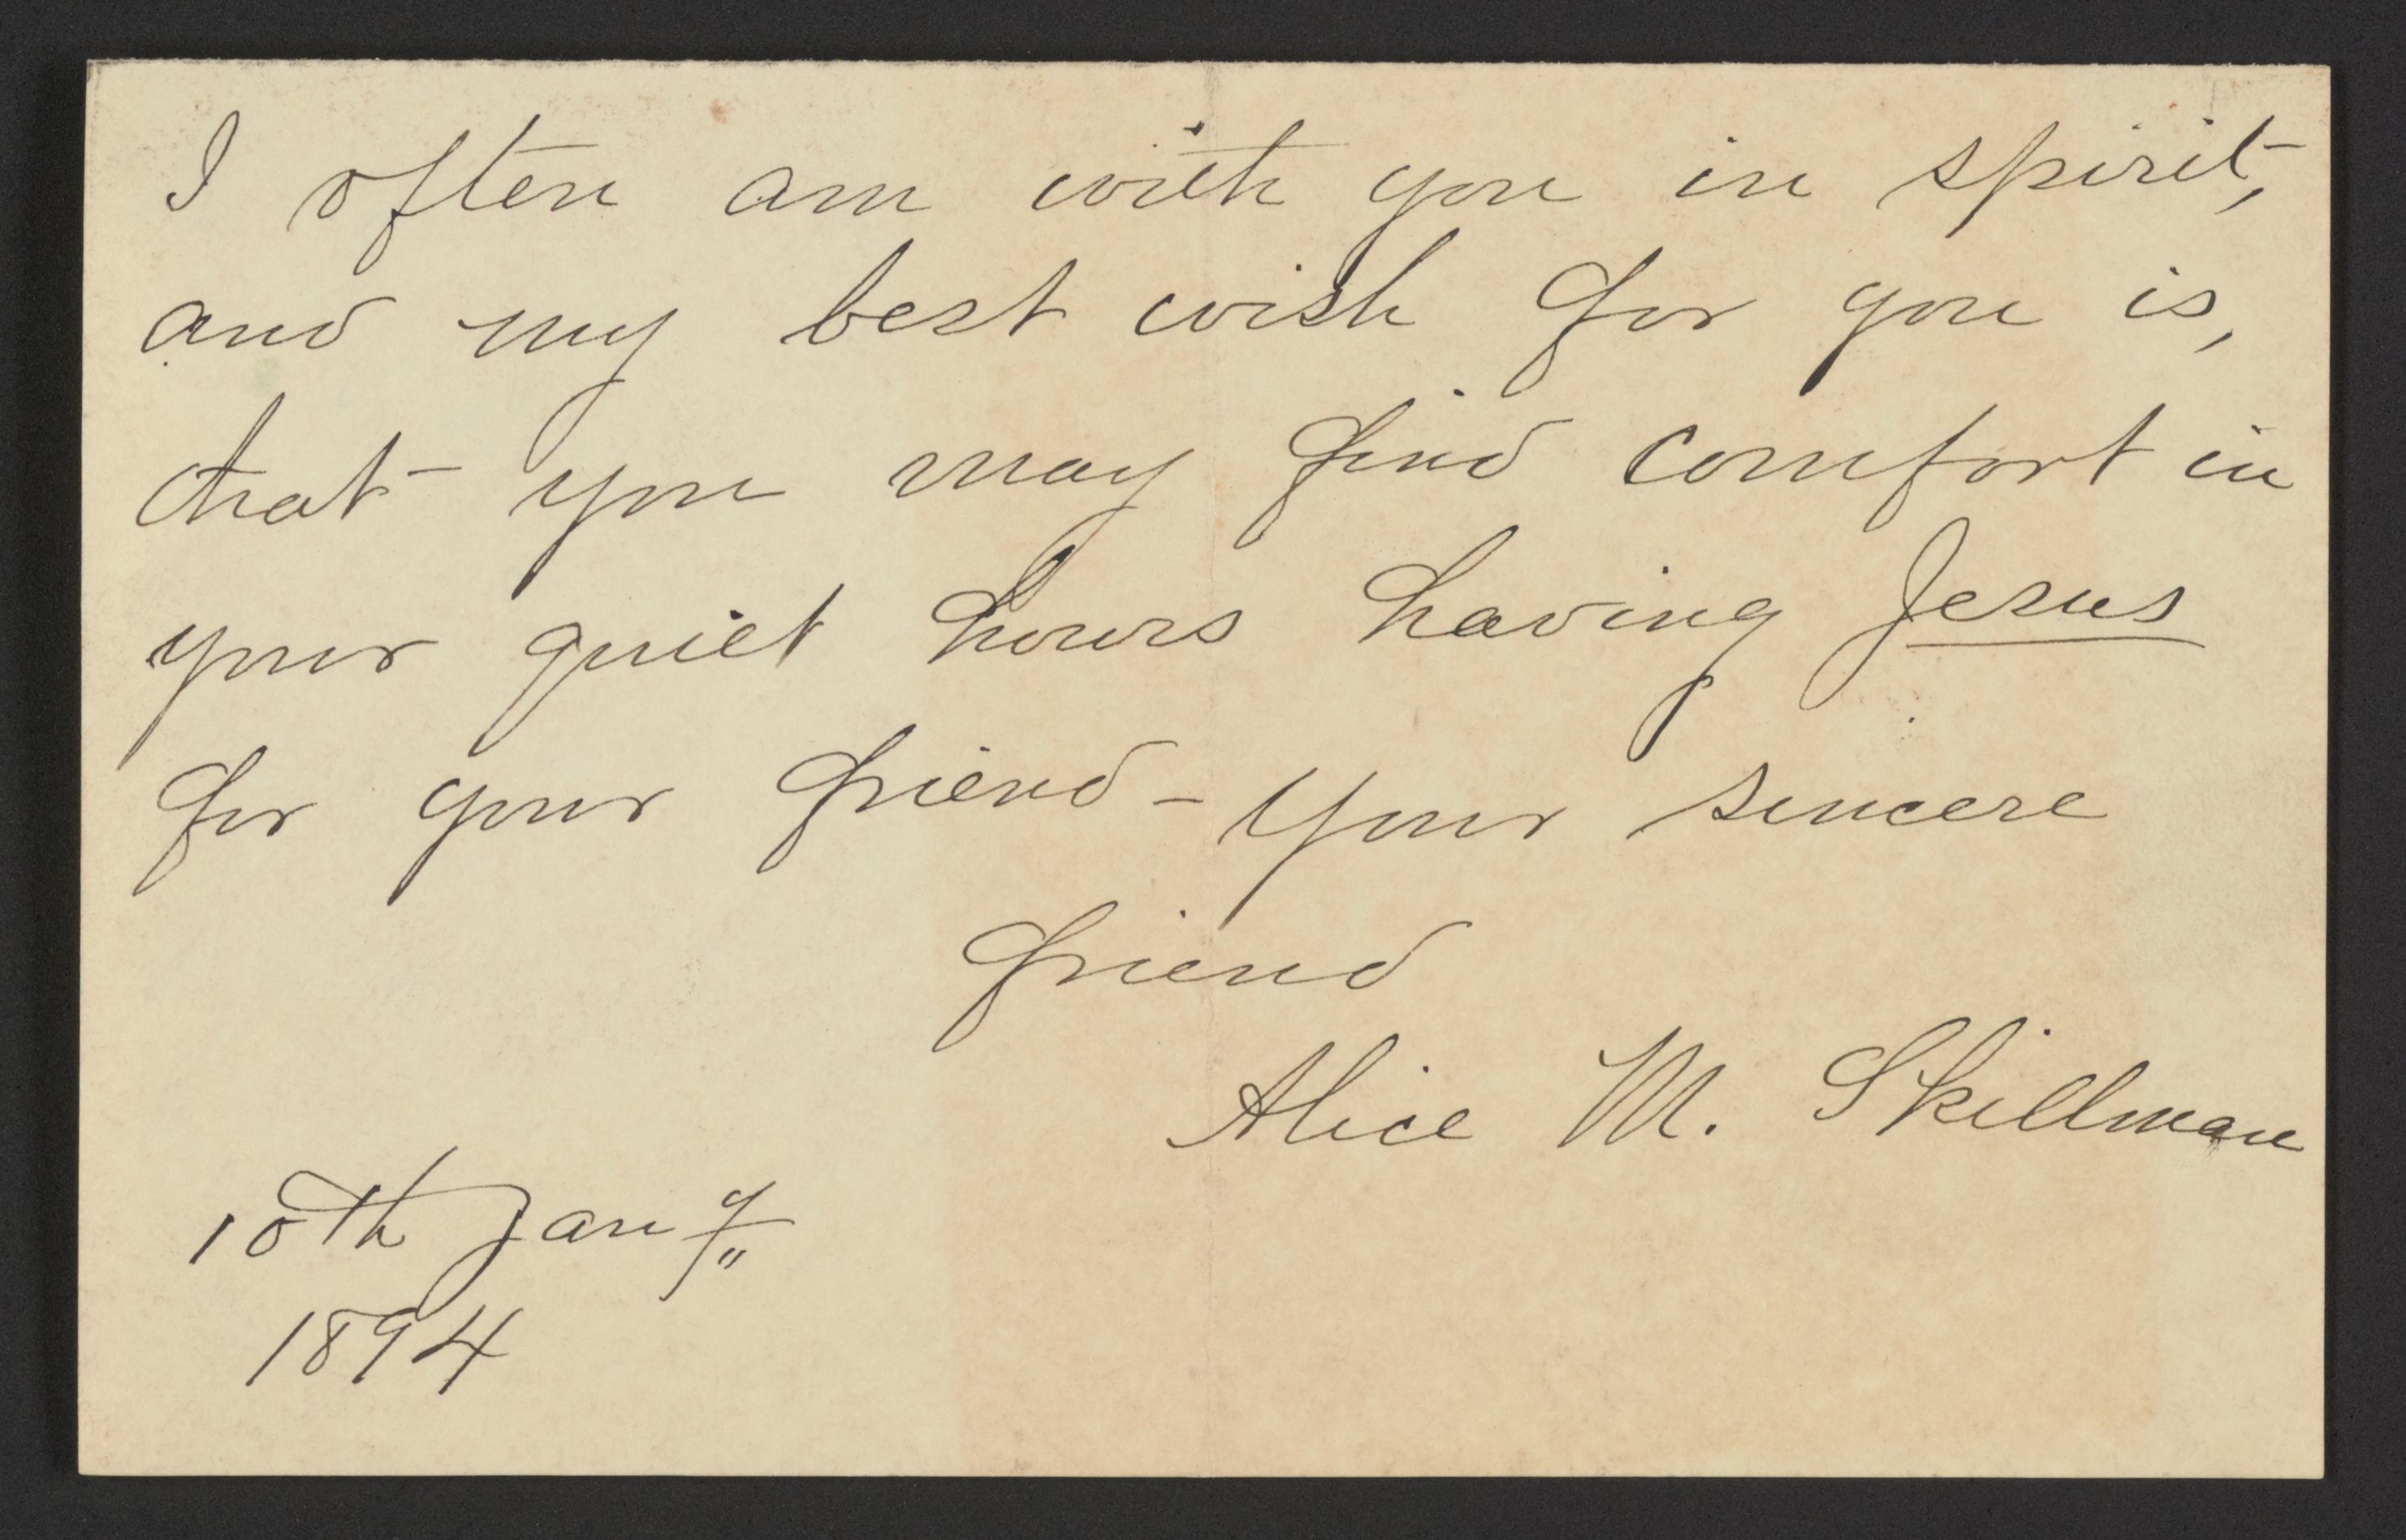 I often am with you in spirit,
and my best wish for you is,
that you may find comfort in
your quiet hours having Jesus
for your friend - Your sincere
friend
Alice M. Skillman
10th Jany
1894